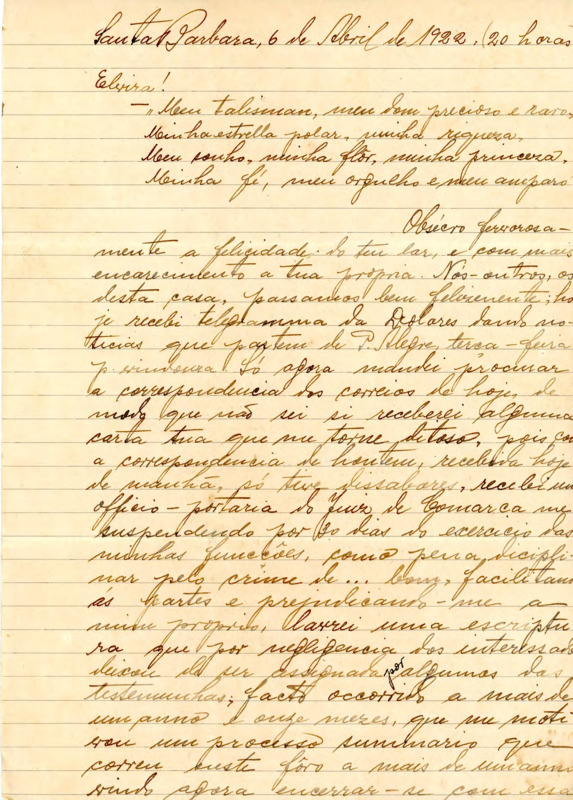 Santa Barbara, 6 de Abril de 1922. (20 horas
Elvira!
— "Meu talisman, meu dom precioso e raro,
Minha estrella polar, minha riqueza,
Meu sonho, minha flôr, minha princeza,
Minha fé, meu orgulho e meu amparo
Obsécro fervorosa-
mente a felicidade do teu lar, e com mais
encarecimento a tua propria. Nós-outros, os
desta casa, passamos bem felizmente; ho
je recebi telegramma da Dolores dando no-
ticias que partem de P. Alegre, terça-feira
p. vindoura. Só agora mandei procurar
a correspondencia dos correios de hoje, de
modo que não sei si receberei alguma
carta tua que me torne ditoso, pois, co
a correspondencia de hontem, recebida hoje
de manhã, só tive dissabores, recebi um
officio-portaria do Juiz de Comarca me
suspendendo por 30 dias do exercicio das
minhas funccões, como pena discipli-
nar pelo crime de... bem, facilitand
ás partes e prejudicando-me a
mim proprio, lavrei uma escriptu
ra que por negligencia dos interessado
deixou de ser assignada por algumas das
testemunhas; facto occorrido a mais de
um anno e onze mezes, que me moti
vou um processo summario que
correu neste fôro a mais de um anno
vindo agora encerrar-se com essa